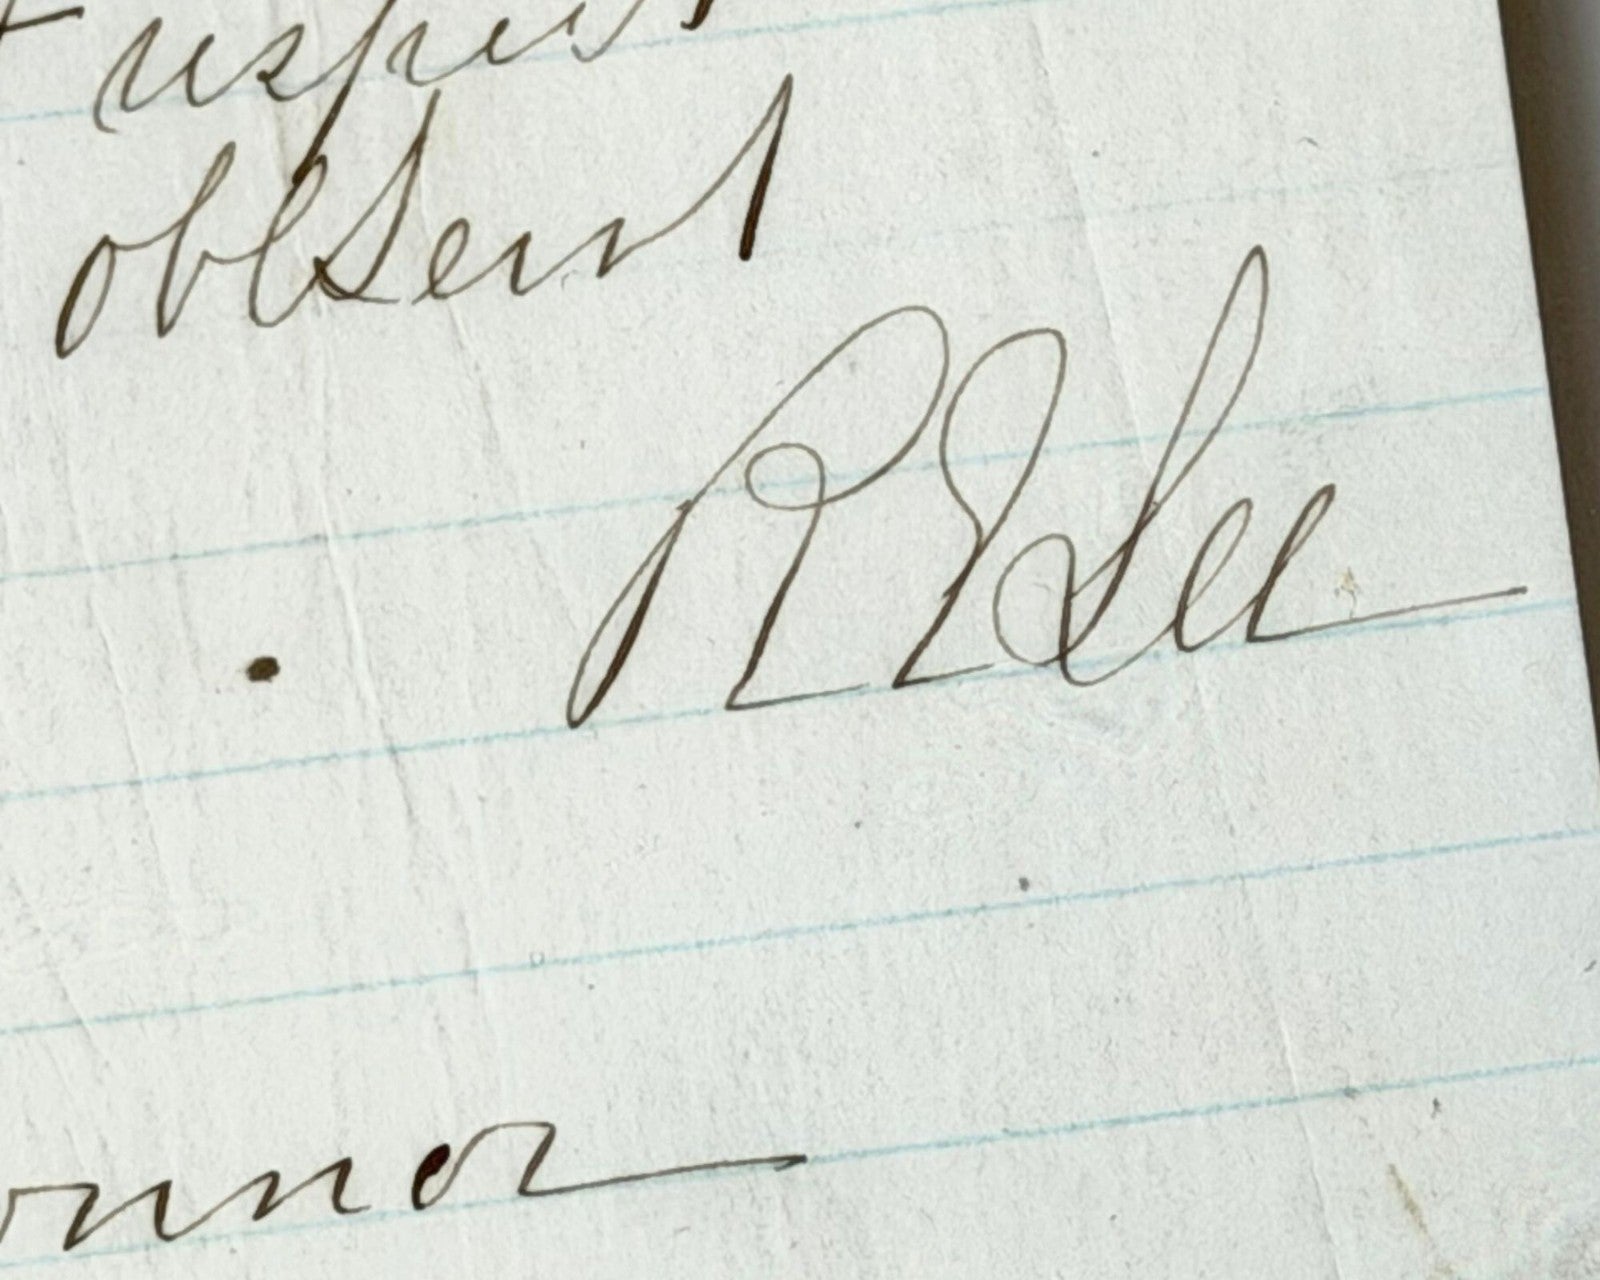 respect
obt Servt
R E Lee
onnor